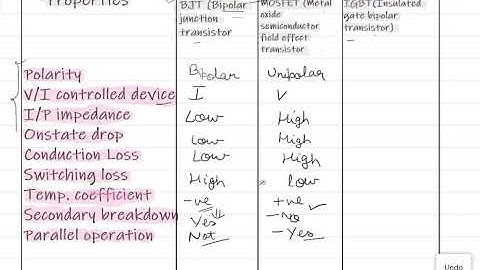 Properties
BJT (Bipolar junction transistor
MOSFET (Metal oxide semiconductor field effect transistor
IGBT (Insulated gate bipolar transistor)
Polarity Bipolar Unipolar
V/I controlled device I V
I/P impedance Low High
Onstate drop Low High
Conduction Loss Low High
Switching loss High low
Temp. coefficient -ve +ve ✓
Secondary breakdown Yes -No
Parallel operation Not -Yes
Undo